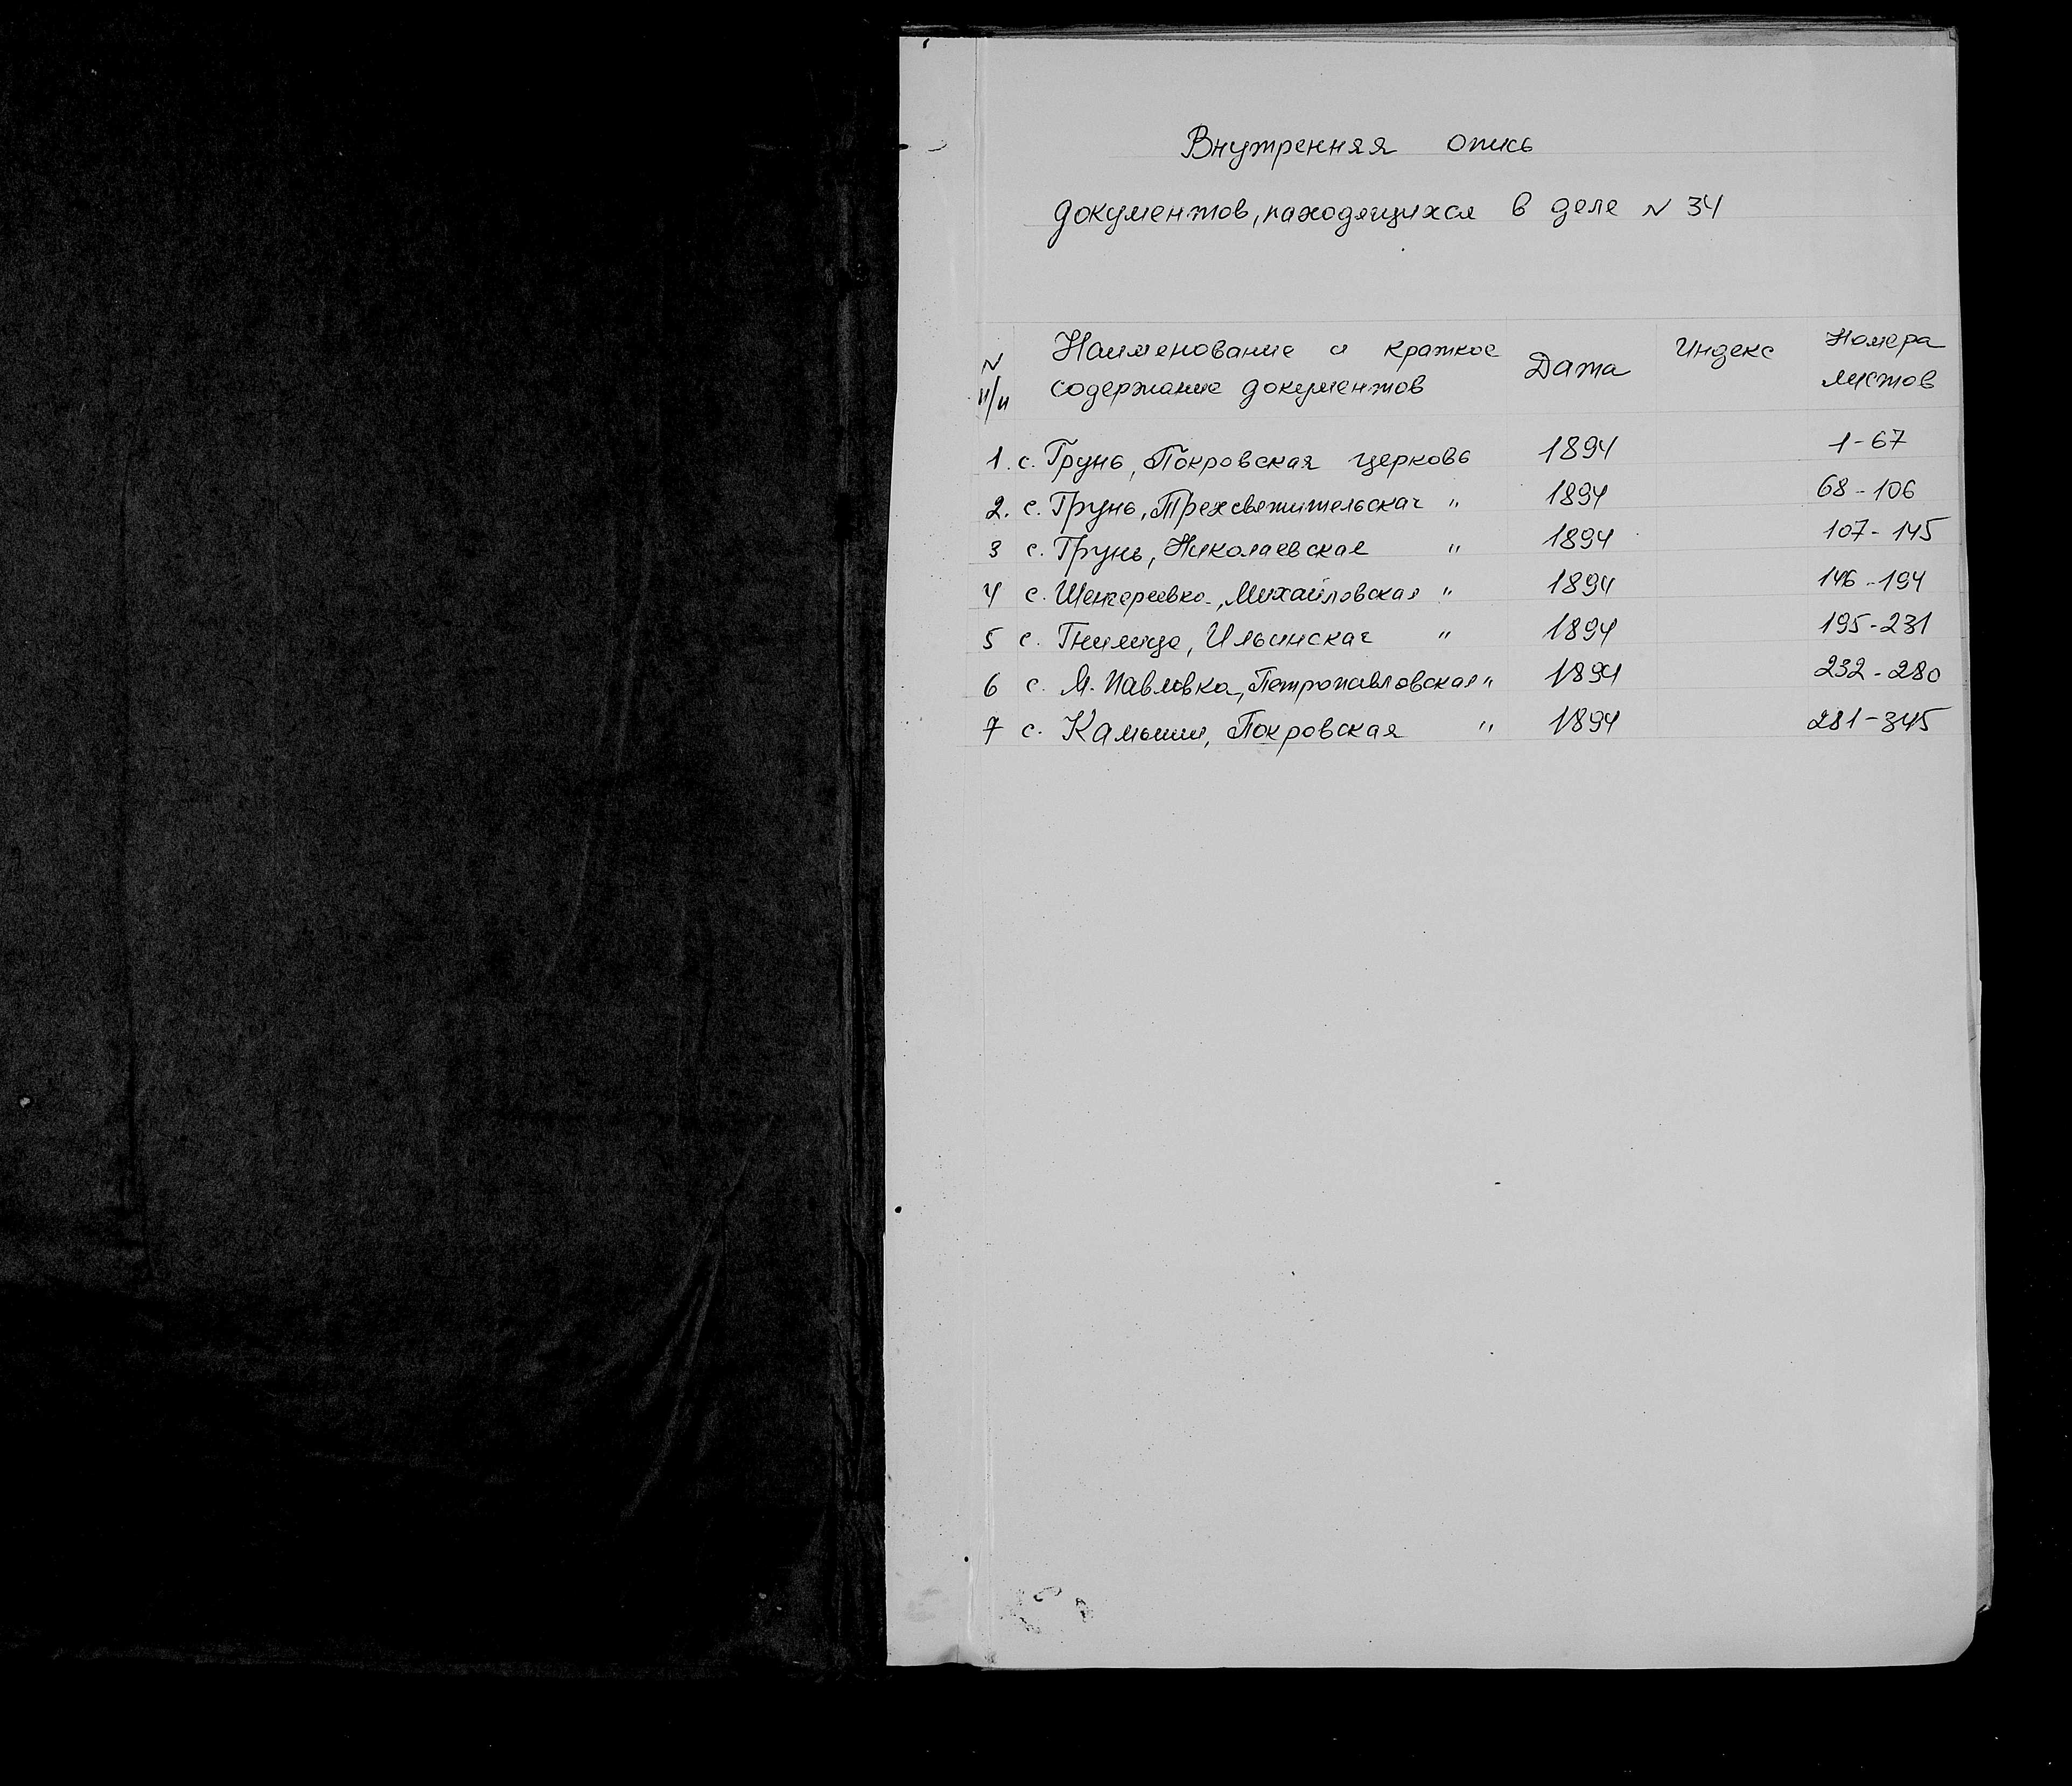 Внутренняя опись
документов, находящихся в деле N 34
N п/п Наименование и краткое содержание документов Дата Индекс Номера листов
1. с. Грунь, Покровская церковь 1894 1-67
2. с. Грунь, Трехсвятительская " 1894 68-106
3 с. Грунь, Николаевская " 1894 107-145
4 с. Михайловская " 1894 146-194
5 с. Гнилица, Ильинская " 1894 195-231
6 с. М. Павловка, Петропавловская " 1894 232-280
7 с. Камыши, Покровская " 1894 281-345